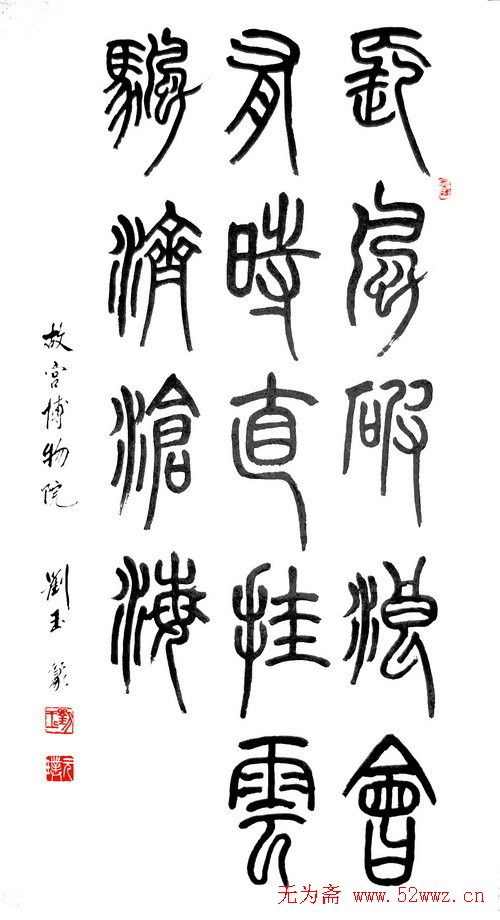 長風破浪會
有時直挂雲
颿濟滄海
故宮博物院 劉玉
无为斋 www.52wwz.cn